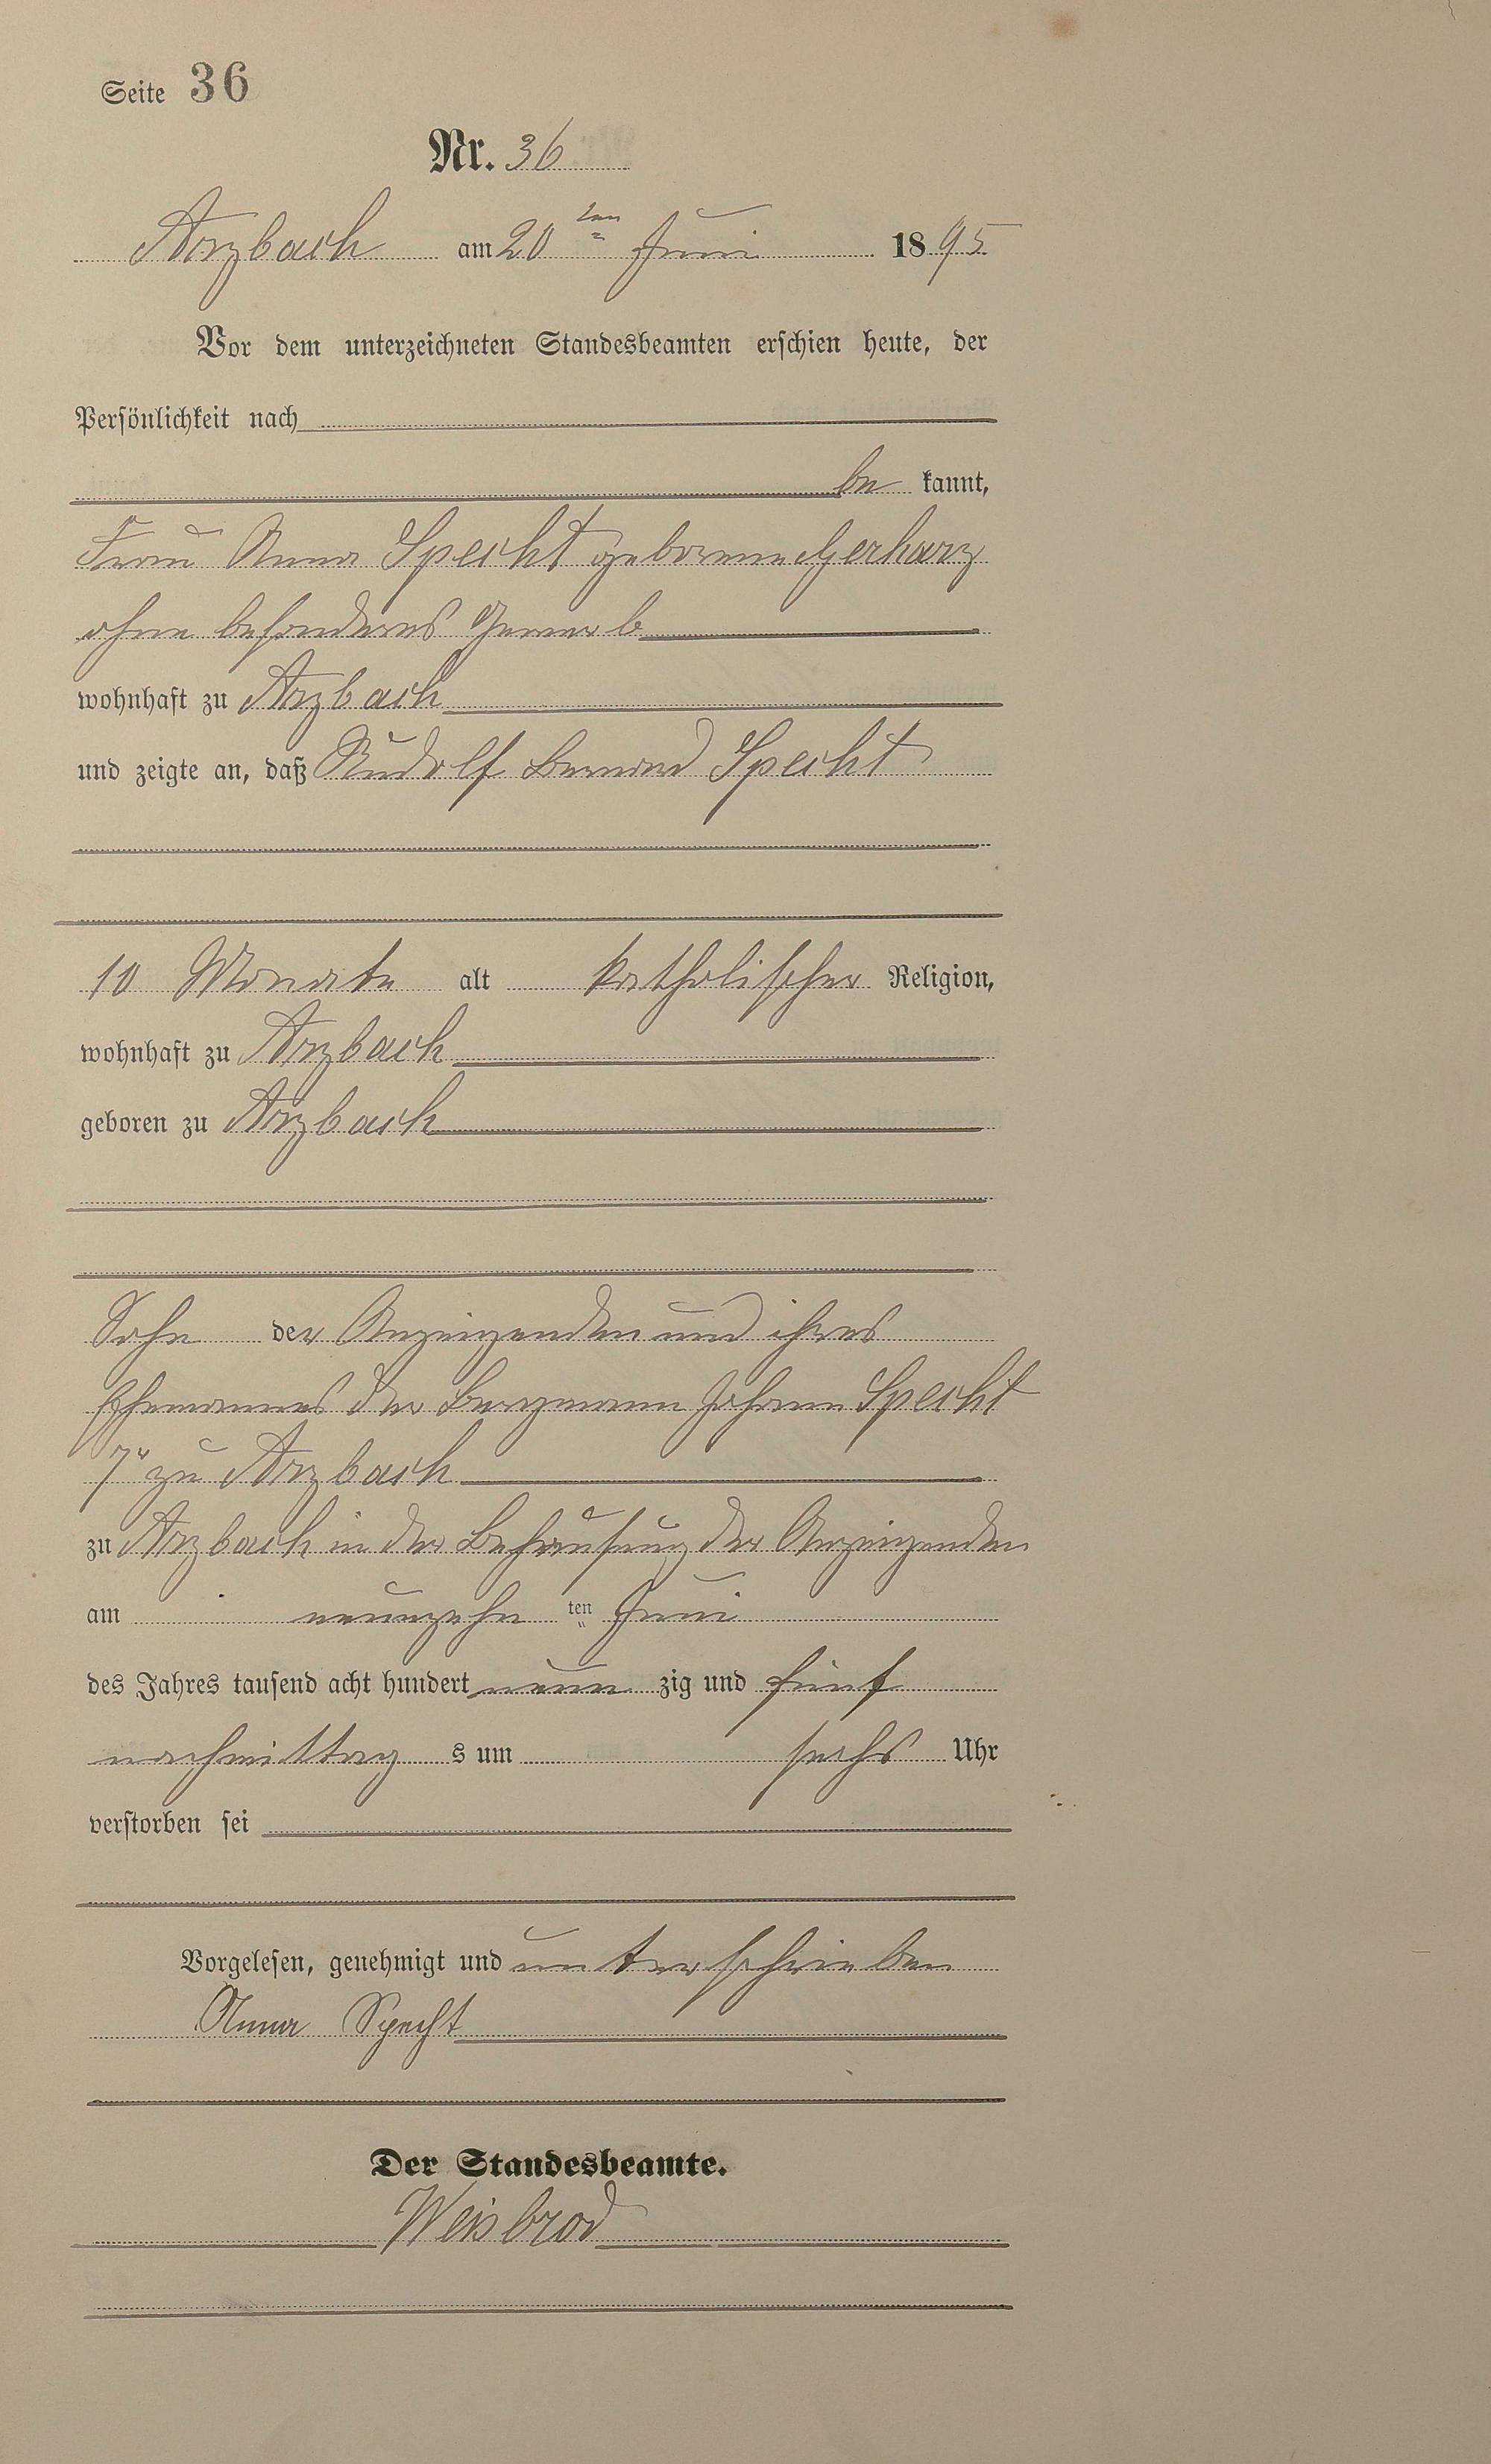 Seite 36
Nr. 36
Arzbach am 20ten Juni 1895
Vor dem unterzeichneten Standesbeamten erschien heute, der
Persönlichkeit nach
be kannt,
Frau Anna Specht geborene Gerharz
ohne besonderes Gewerb
wohnhaft zu Arzbach
und zeigte an, daß Rudolf Bernard Specht
10 Monate alt katholischer Religion,
wohnhaft zu Arzbach
geboren zu Arzbach
Sohn der Anzeigenden und ihres
Ehemannes der Bergmann Johann Specht
7r zu Arzbach
zu Arzbach in der Behausung der Anzeigenden
am neunzehn ten Juni
des Jahres tausend acht hundert neun zig und fünf
nachmittag s um sechs Uhr
verstorben sei
Vorgelesen, genehmigt und unterschrieben
Anna Specht
Der Standesbeamte.
Weisbrod